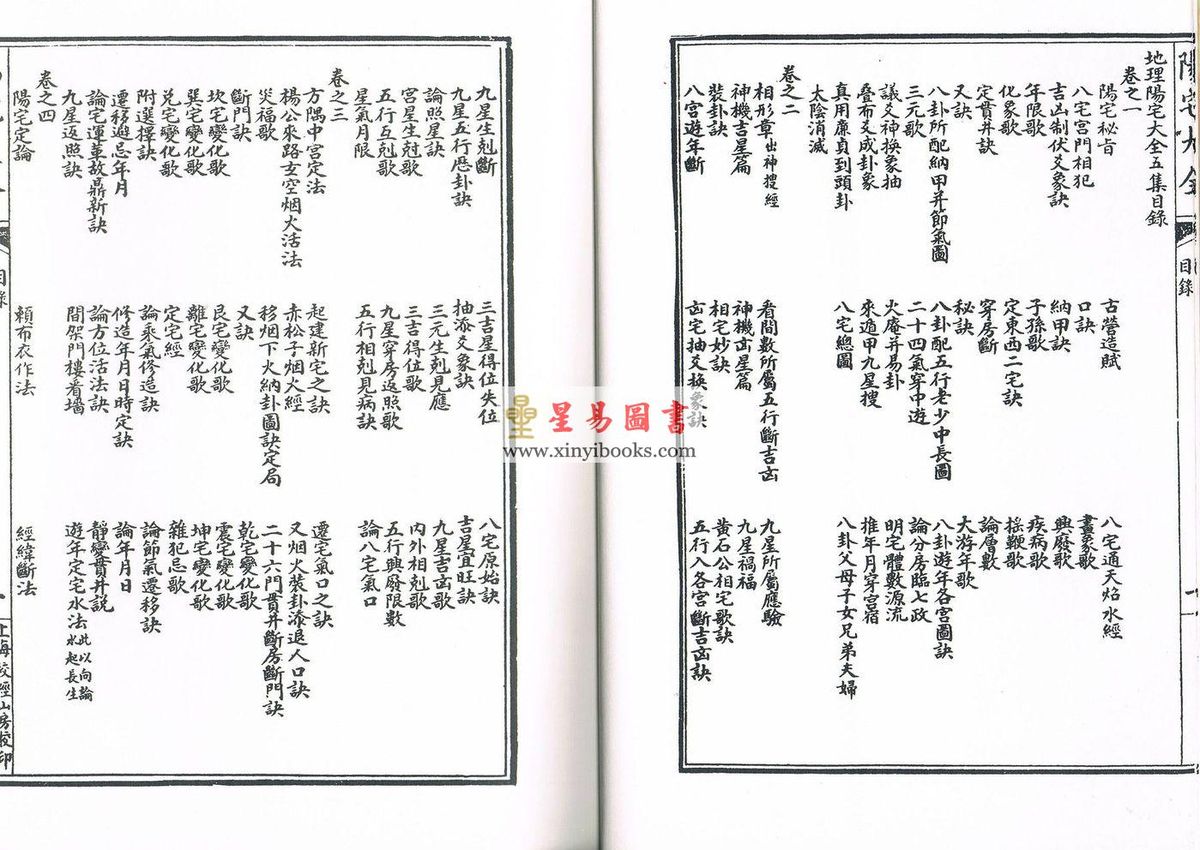 陽宅大全 目錄 一
地理陽宅大全五集目錄
卷之一
陽宅秘旨 古營造賦 八宅通天焰水經
八宅宮門相犯 口訣 畫象歌
吉凶制伏爻象訣 納甲訣 興廢歌
年限歌 子孫歌 疾病歌
化象歌 定東西二宅訣 搖鞭歌
定貫井訣 穿房斷 論層數
又訣 秘訣 大游年歌
八卦所配納甲并節氣圖 八卦配五行老少中長圖 八卦遊年各宮圖訣
三元歌 二十四氣穿中遊 論分房臨七政
議爻神換象抽 火庵并易卦 明宅體數源流
叠布爻成卦象 來遁甲九星搜 推年月穿宮宿
真用廉貞到頭卦 八宅總圖 八卦父母子女兄弟夫婦
太陰消滅
卷之二
相形章出神搜經 看間數所屬五行斷吉凶 九星所屬應驗
神機吉星篇 神機凶星篇 九星禍福
裝卦訣 相宅妙訣 黃石公相宅歌訣
八宮遊年斷 凶宅抽爻換象訣 五行入各宮斷吉凶訣
九星生剋斷 三吉星得位失位 八宅原始訣
九星五行歷卦訣 抽添爻象訣 吉星宜旺訣
論照星訣 三元生剋見應 九星吉凶歌
宮星生尅歌 三吉得位歌 內外相剋歌
五行互剋歌 九星穿房返照歌 五行興廢限數
星氣月限 五行相剋見病訣 論八宅氣口
卷之三
方隅中宮定法 起建新宅之訣 遷宅氣口之訣
楊公來路玄空烟火活法 赤松子烟火經 又烟火裝卦添退人口訣
災福歌 移烟下火納卦圖訣定局 二十六門貫井斷房斷門訣
斷門訣 又訣 乾宅變化歌
坎宅變化歌 艮宅變化歌 震宅變化歌
巽宅變化歌 離宅變化歌 坤宅變化歌
兌宅變化歌 定宅經 雜犯忌歌
附選擇訣 論乘氣修造訣 論節氣遷移訣
遷移避忌年月 修造年月日時定訣 論年月日
論宅運革故鼎新訣 論方位活法訣 靜變貫井說
九星返照訣 間架門樓看墻 遊年定宅水法此以向論水起長生
卷之四
陽宅定論 賴布衣作法 經緯斷法
目錄 一 上海校經山房校印
星易圖書
www.xinyibooks.com